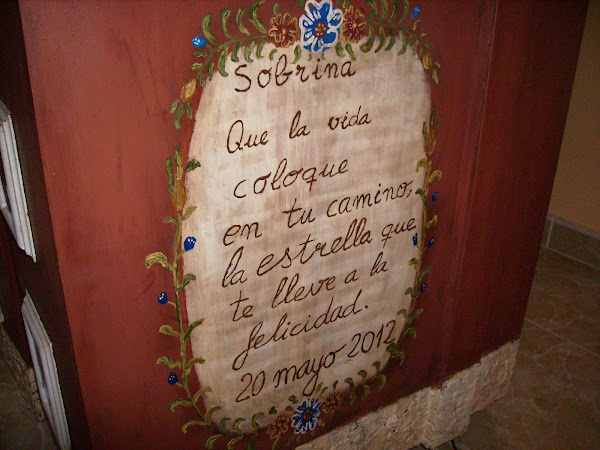 Sobrina
Que la vida
coloque
en tu camino,
la estrella que
te lleve a la
felicidad.
20 mayo 2012